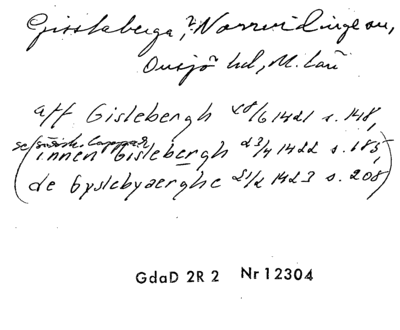 Gissleberga, Norrvidinge sn,
Onsjö hd, M. län
aff Gislebergh 28/6 1421 s. 148,
se särsk. lappar
(innen Gislebergh 23/4 1422 s. 185,
(de Gyslebyaerghe 21/2 1423 s. 208)
GdaD 2R 2 Nr 12304